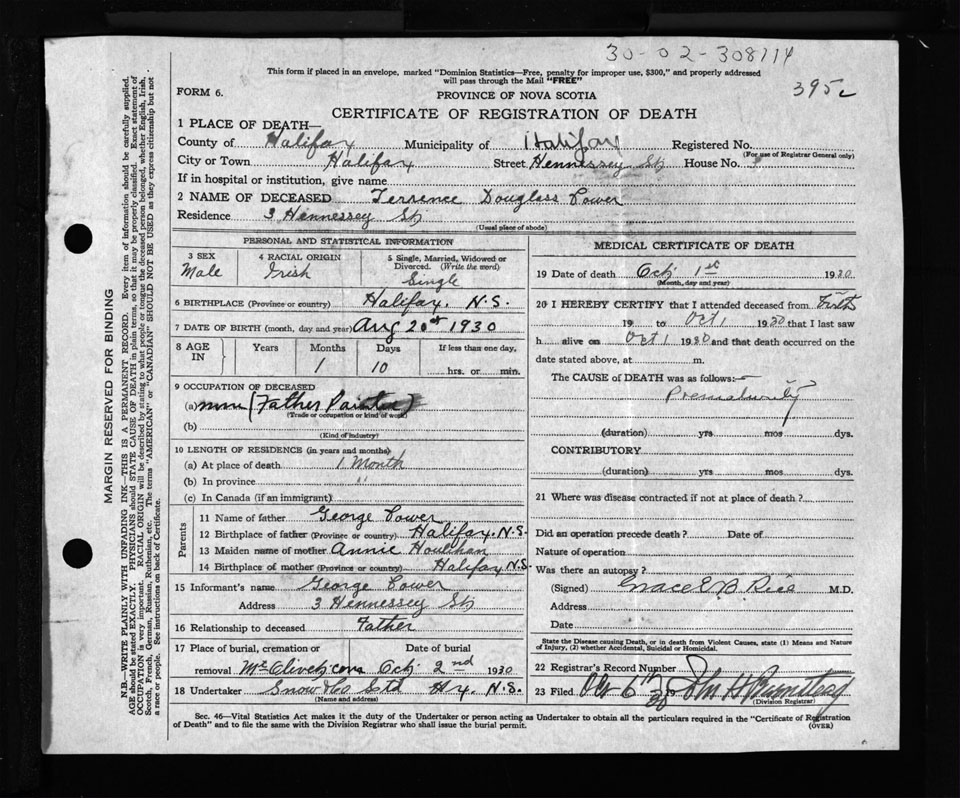 30-02-308114
395
This form if placed in an envelope, marked "Dominion Statistics—Free, penalty for improper use, $300," and properly addressed
will pass through the Mail "FREE"
FORM 6.
PROVINCE OF NOVA SCOTIA
CERTIFICATE OF REGISTRATION OF DEATH
1 PLACE OF DEATH—
County of Halifax Municipality of Halifax Registered No.
(For use of Registrar General only)
City or Town Halifax Street Hennessey St House No. 3
If in hospital or institution, give name
2 NAME OF DECEASED Terrence Douglass Power
Residence 3 Hennessey St
(Usual place of abode)
PERSONAL AND STATISTICAL INFORMATION
3 SEX 4 RACIAL ORIGIN 5 Single, Married, Widowed or
Divorced. (Write the word)
Male Irish Single
6 BIRTHPLACE (Province or country) Halifax. N.S.
7 DATE OF BIRTH (month, day and year) Aug 20st 1930
8 AGE IN Years Months Days If less than one day,
1 10 hrs. or min.
9 OCCUPATION OF DECEASED
(a) (Father Painter)
(Trade or occupation or kind of work)
(b)
(Kind of industry)
10 LENGTH OF RESIDENCE (in years and months)
(a) At place of death 1 Month
(b) In province "
(c) In Canada (if an immigrant)
Parents
11 Name of father George Power
12 Birthplace of father (Province or country) Halifax. N.S.
13 Maiden name of mother Annie Houlihan
14 Birthplace of mother (Province or country) Halifax N.S.
15 Informant's name George Power
Address 3 Hennessey St
16 Relationship to deceased Father
17 Place of burial, cremation or Date of burial
removal Mt Olivet cem Oct 2nd 1930
18 Undertaker Snow & Co Ltd Hx. N.S.
(Name and address)
MEDICAL CERTIFICATE OF DEATH
19 Date of death Oct 1st 1930
(Month, day and year)
20 I HEREBY CERTIFY that I attended deceased from Birth
19 to Oct 1 1930 that I last saw
h alive on Oct 1 1930 and that death occurred on the
date stated above, at m.
The CAUSE of DEATH was as follows:—
Prematurity
(duration) yrs mos dys.
CONTRIBUTORY
(duration) yrs mos dys.
21 Where was disease contracted if not at place of death?
Did an operation precede death? Date of
Nature of operation
Was there an autopsy?
(Signed) Grace E. B. Rice M.D.
Address
Date
State the Disease causing Death, or in death from Violent Causes, state (1) Means and Nature
of Injury, (2) whether Accidental, Suicidal or Homicidal.
22 Registrar's Record Number
23 Filed Oct 6th 30 John H
(Division Registrar)
Sec. 46—Vital Statistics Act makes it the duty of the Undertaker or person acting as Undertaker to obtain all the particulars required in the "Certificate of Registration
of Death" and to file the same with the Division Registrar who shall issue the burial permit. (OVER)
MARGIN RESERVED FOR BINDING
N.B.—WRITE PLAINLY WITH UNFADING INK—THIS IS A PERMANENT RECORD. Every item of information should be carefully supplied.
AGE should be stated EXACTLY. PHYSICIANS should STATE CAUSE OF DEATH in plain terms, so that it may be properly classified. Exact statement of
OCCUPATION is very important. RACIAL ORIGIN will be described by stating to what people or tongue the deceased person belonged, whether English, Irish,
Scotch, French, German, Russian, Ruthenian, etc. The terms "AMERICAN" or "CANADIAN" SHOULD NOT BE USED as they express citizenship but not
a race or people. See instructions on back of Certificate.